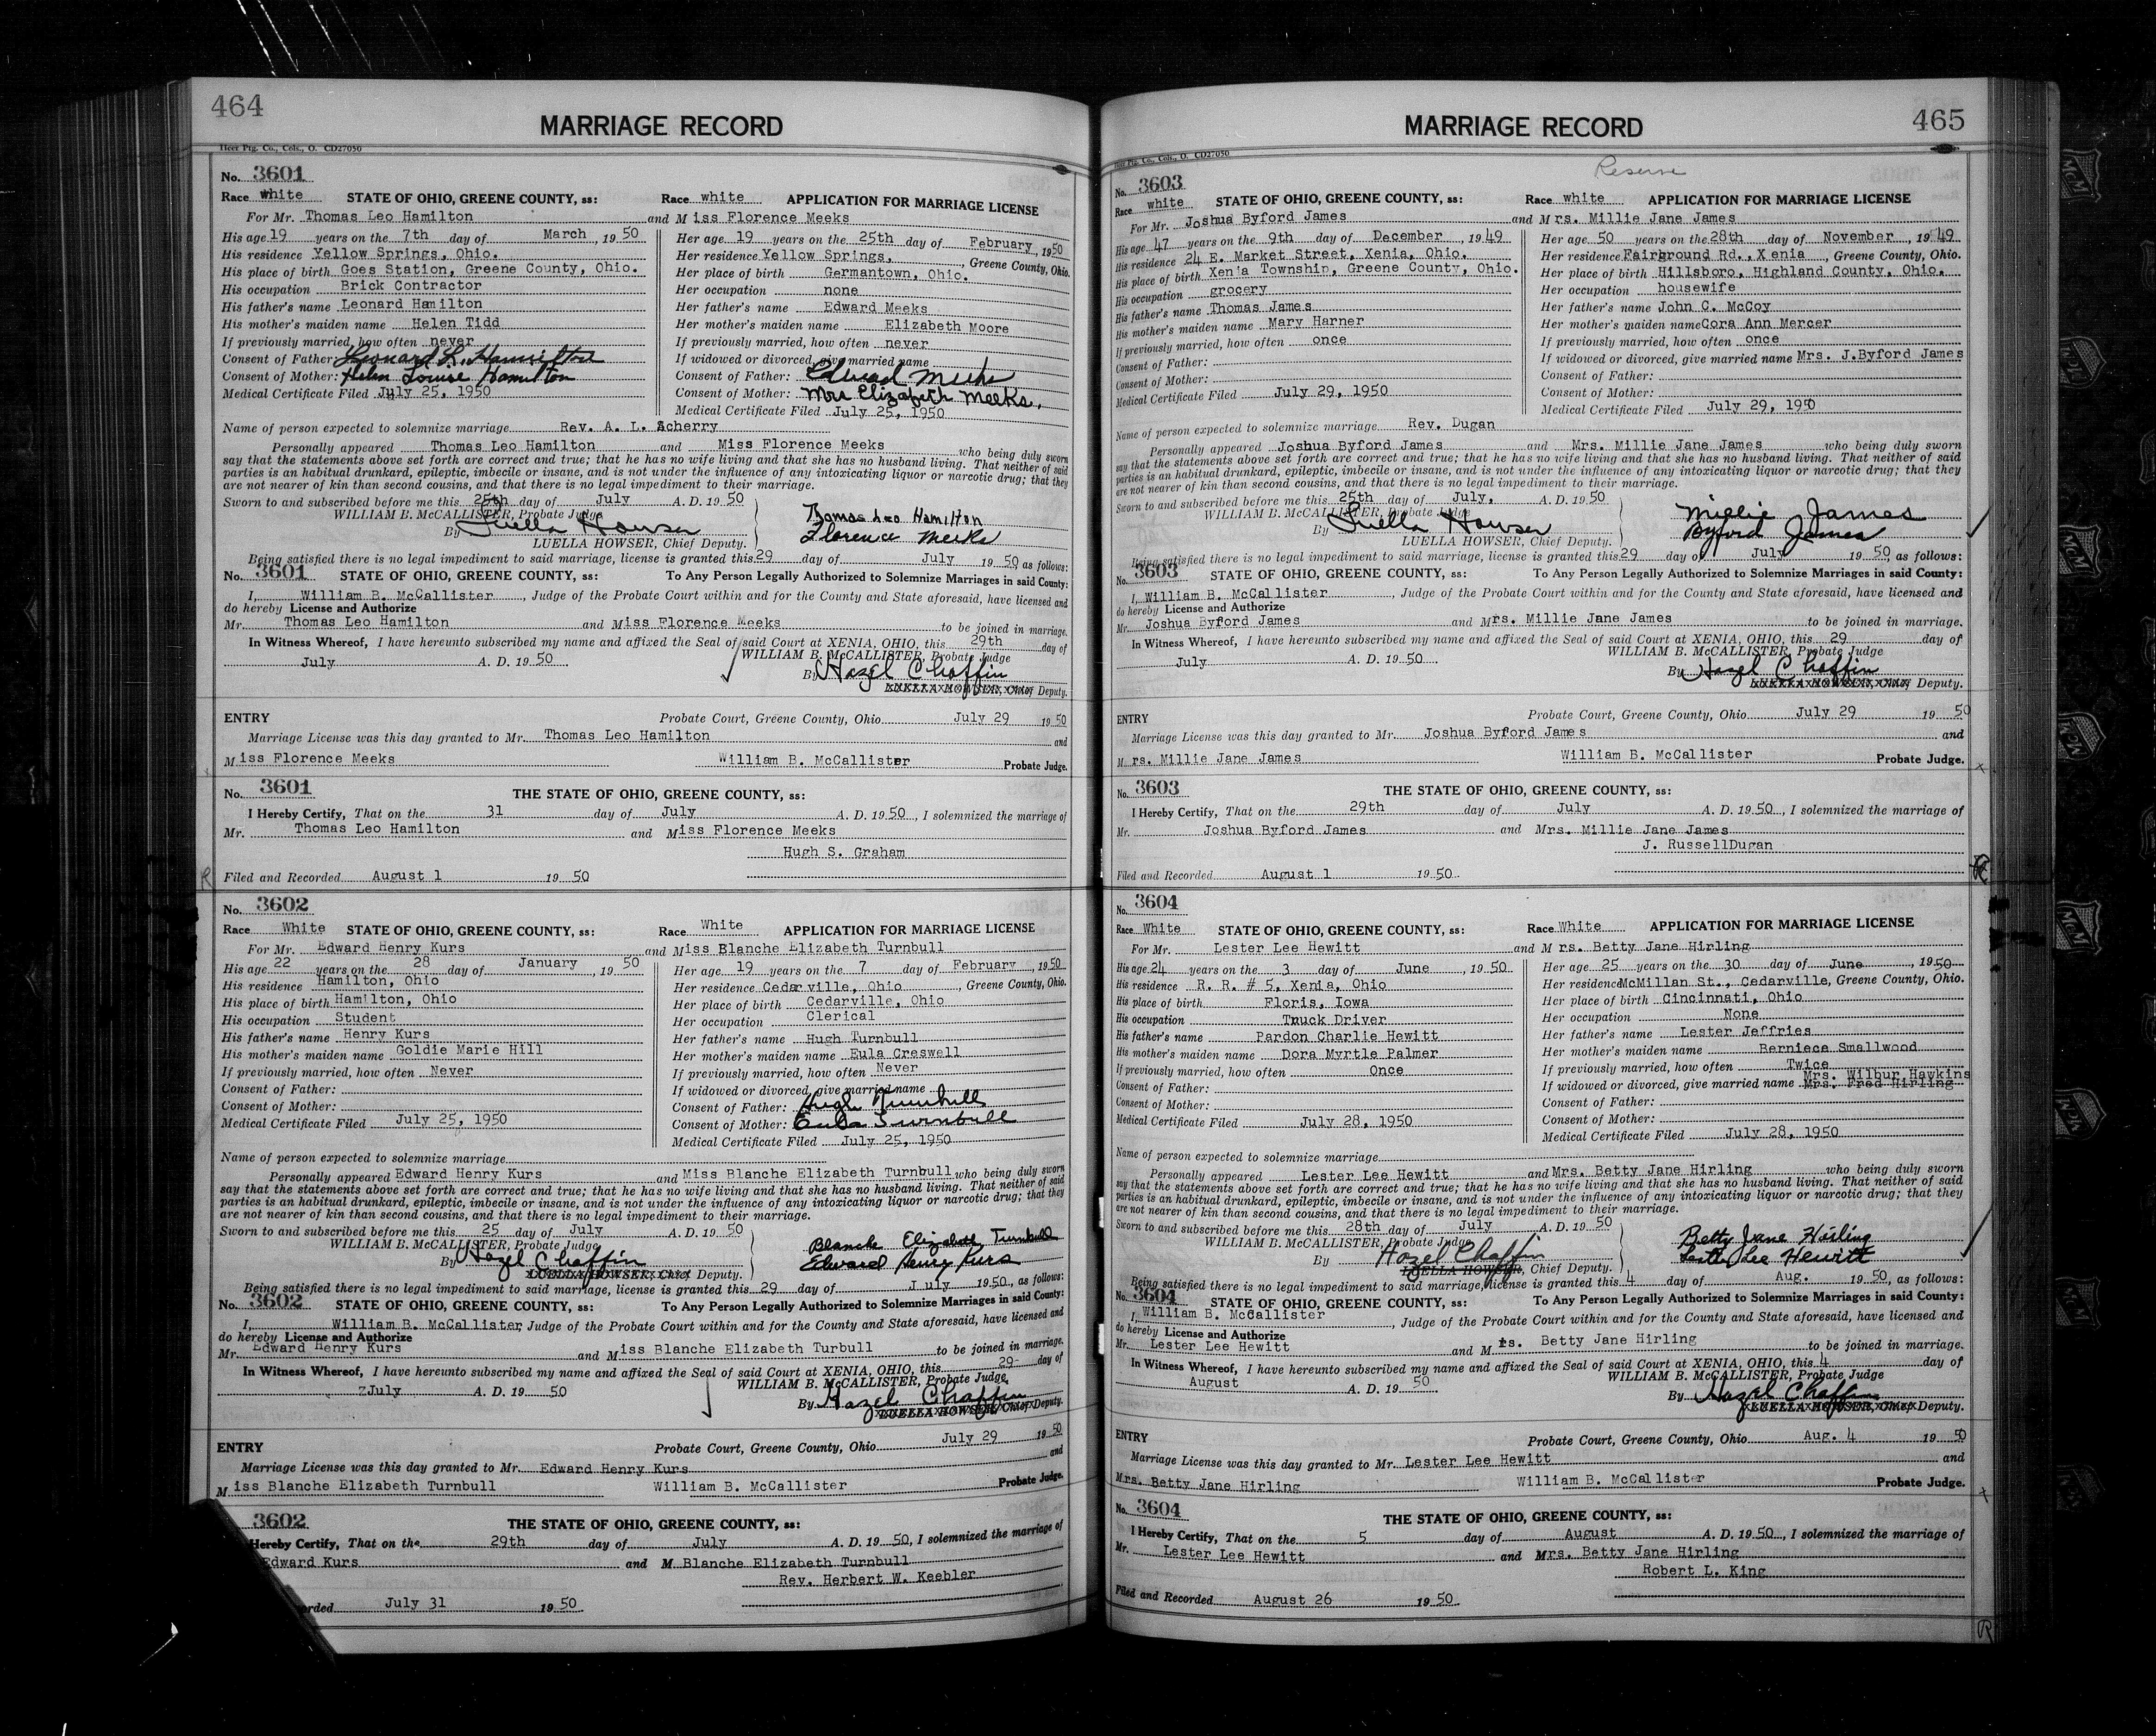 464
MARRIAGE RECORD
Heer Ptg. Co., Cols., O. CD27050
No. 3601
Race white STATE OF OHIO, GREENE COUNTY, ss: Race white APPLICATION FOR MARRIAGE LICENSE
For Mr. Thomas Leo Hamilton and Miss Florence Meeks
His age 19 years on the 7th day of March, 1950
His residence Yellow Springs, Ohio.
His place of birth Goes Station, Greene County, Ohio.
His occupation Brick Contractor
His father's name Leonard Hamilton
His mother's maiden name Helen Tidd
If previously married, how often never
Consent of Father: Leonard L. Hamilton
Consent of Mother: Helen Louise Hamilton
Medical Certificate Filed July 25, 1950
Her age 19 years on the 25th day of February, 1950
Her residence Yellow Springs, , Greene County, Ohio.
Her place of birth Germantown, Ohio.
Her occupation none
Her father's name Edward Meeks
Her mother's maiden name Elizabeth Moore
If previously married, how often never
If widowed or divorced, give married name
Consent of Father: Edward Meeks
Consent of Mother: Mrs Elizabeth Meeks.
Medical Certificate Filed July 25, 1950
Name of person expected to solemnize marriage Rev. A. L. Scherry
Personally appeared Thomas Leo Hamilton and Miss Florence Meeks who being duly sworn
say that the statements above set forth are correct and true; that he has no wife living and that she has no husband living. That neither of said
parties is an habitual drunkard, epileptic, imbecile or insane, and is not under the influence of any intoxicating liquor or narcotic drug; that they
are not nearer of kin than second cousins, and that there is no legal impediment to their marriage.
Sworn to and subscribed before me this 25th day of July A. D. 1950
WILLIAM B. McCALLISTER, Probate Judge
By Luella Howser
LUELLA HOWSER, Chief Deputy.
Thomas Leo Hamilton
Florence Meeks
Being satisfied there is no legal impediment to said marriage, license is granted this 29 day of July 1950 as follows:
No. 3601 STATE OF OHIO, GREENE COUNTY, ss: To Any Person Legally Authorized to Solemnize Marriages in said County:
I, William B. McCallister, Judge of the Probate Court within and for the County and State aforesaid, have licensed and
do hereby License and Authorize
Mr. Thomas Leo Hamilton and Miss Florence Meeks to be joined in marriage.
In Witness Whereof, I have hereunto subscribed my name and affixed the Seal of said Court at XENIA, OHIO, this 29th day of
July A. D. 1950
WILLIAM B. McCALLISTER, Probate Judge
By Hazel Chaffin
LUELLA HOWSER, Chief Deputy.
ENTRY Probate Court, Greene County, Ohio July 29 1950
Marriage License was this day granted to Mr. Thomas Leo Hamilton and
Miss Florence Meeks William B. McCallister Probate Judge.
No. 3601 THE STATE OF OHIO, GREENE COUNTY, ss:
I Hereby Certify, That on the 31 day of July A. D. 1950, I solemnized the marriage of
Mr. Thomas Leo Hamilton and Miss Florence Meeks
Hugh S. Graham
R Filed and Recorded August 1 1950
No. 3602
Race White STATE OF OHIO, GREENE COUNTY, ss: Race White APPLICATION FOR MARRIAGE LICENSE
For Mr. Edward Henry Kurs and Miss Blanche Elizabeth Turnbull
His age 22 years on the 28 day of January, 1950
His residence Hamilton, Ohio
His place of birth Hamilton, Ohio
His occupation Student
His father's name Henry Kurs
His mother's maiden name Goldie Marie Hill
If previously married, how often Never
Consent of Father:
Consent of Mother:
Medical Certificate Filed July 25, 1950
Her age 19 years on the 7 day of February, 1950
Her residence Cedarville, Ohio, Greene County, Ohio.
Her place of birth Cedarville, Ohio
Her occupation Clerical
Her father's name Hugh Turnbull
Her mother's maiden name Eula Creswell
If previously married, how often Never
If widowed or divorced, give married name
Consent of Father: Hugh Turnbull
Consent of Mother: Eula Turnbull
Medical Certificate Filed July 25, 1950
Name of person expected to solemnize marriage
Personally appeared Edward Henry Kurs and Miss Blanche Elizabeth Turnbull who being duly sworn
say that the statements above set forth are correct and true; that he has no wife living and that she has no husband living. That neither of said
parties is an habitual drunkard, epileptic, imbecile or insane, and is not under the influence of any intoxicating liquor or narcotic drug; that they
are not nearer of kin than second cousins, and that there is no legal impediment to their marriage.
Sworn to and subscribed before me this 25 day of July A. D. 1950
WILLIAM B. McCALLISTER, Probate Judge
By Hazel Chaffin
LUELLA HOWSER, Chief Deputy.
Blanche Elizabeth Turnbull
Edward Henry Kurs
Being satisfied there is no legal impediment to said marriage, license is granted this 29 day of July 1950, as follows:
No. 3602 STATE OF OHIO, GREENE COUNTY, ss: To Any Person Legally Authorized to Solemnize Marriages in said County:
I, William B. McCallister, Judge of the Probate Court within and for the County and State aforesaid, have licensed and
do hereby License and Authorize
Mr. Edward Henry Kurs and Miss Blanche Elizabeth Turbull to be joined in marriage.
In Witness Whereof, I have hereunto subscribed my name and affixed the Seal of said Court at XENIA, OHIO, this 29- day of
July A. D. 19 50
WILLIAM B. McCALLISTER, Probate Judge
By Hazel Chaffin
LUELLA HOWSER, Chief Deputy.
ENTRY Probate Court, Greene County, Ohio July 29 1950
Marriage License was this day granted to Mr. Edward Henry Kurs and
Miss Blanche Elizabeth Turnbull William B. McCallister Probate Judge.
3602 THE STATE OF OHIO, GREENE COUNTY, ss:
Hereby Certify, That on the 29th day of July A. D. 1950, I solemnized the marriage of
Edward Kurs and M Blanche Elizabeth Turnbull
Rev. Herbert W. Keebler
orded July 31 1950
465
MARRIAGE RECORD
Heer Ptg. Co., Cols., O. CD27050
Reserve
No. 3603
Race white STATE OF OHIO, GREENE COUNTY, ss: Race white APPLICATION FOR MARRIAGE LICENSE
For Mr. Joshua Byford James and Mrs. Millie Jane James
His age 47 years on the 9th day of December, 1949
His residence 24 E. Market Street, Xenia, Ohio.
His place of birth Xen'a Township, Greene County, Ohio.
His occupation grocery
His father's name Thomas James
His mother's maiden name Mary Harner
If previously married, how often once
Consent of Father:
Consent of Mother:
Medical Certificate Filed July 29, 1950
Her age 50 years on the 28th day of November, 1949
Her residence Fairground Rd., Xenia, Greene County, Ohio.
Her place of birth Hillsboro, Highland County, Ohio.
Her occupation housewife
Her father's name John C. McCoy
Her mother's maiden name Cora Ann Mercer
If previously married, how often once
If widowed or divorced, give married name Mrs. J.Byford James
Consent of Father:
Consent of Mother:
Medical Certificate Filed July 29, 1950
Name of person expected to solemnize marriage Rev. Dugan
Personally appeared Joshua Byford James and Mrs. Millie Jane James who being duly sworn
say that the statements above set forth are correct and true; that he has no wife living and that she has no husband living. That neither of said
parties is an habitual drunkard, epileptic, imbecile or insane, and is not under the influence of any intoxicating liquor or narcotic drug; that they
are not nearer of kin than second cousins, and that there is no legal impediment to their marriage.
Sworn to and subscribed before me this 25th day of July. A. D. 1950
WILLIAM B. McCALLISTER, Probate Judge
By Luella Howser
LUELLA HOWSER, Chief Deputy.
Millie James
Byford James
Being satisfied there is no legal impediment to said marriage, license is granted this 29 day of July 1950 as follows:
No. 3603 STATE OF OHIO, GREENE COUNTY, ss: To Any Person Legally Authorized to Solemnize Marriages in said County:
I, William B. McCallister, Judge of the Probate Court within and for the County and State aforesaid, have licensed and
do hereby License and Authorize
Mr. Joshua Byford James and Mrs. Millie Jane James to be joined in marriage.
In Witness Whereof, I have hereunto subscribed my name and affixed the Seal of said Court at XENIA, OHIO, this 29 day of
July A. D. 1950
WILLIAM B. McCALLISTER, Probate Judge
By Hazel Chaffin
LUELLA HOWSER, Chief Deputy.
ENTRY Probate Court, Greene County, Ohio July 29 1950
Marriage License was this day granted to Mr. Joshua Byford James and
Mrs. Millie Jane James William B. McCallister Probate Judge.
No. 3603 THE STATE OF OHIO, GREENE COUNTY, ss:
I Hereby Certify, That on the 29th day of July A. D. 1950, I solemnized the marriage of
Mr. Joshua Byford James and Mrs. Millie Jane James
J. RussellDugan
Filed and Recorded August 1 1950 R
No. 3604
Race White STATE OF OHIO, GREENE COUNTY, ss: Race White APPLICATION FOR MARRIAGE LICENSE
For Mr. Lester Lee Hewitt and Mrs. Betty Jane Hirling
His age 24 years on the 3 day of June, 1950
His residence R. R. # 5, Xenia, Ohio
His place of birth Floris, Iowa
His occupation Truck Driver
His father's name Pardon Charlie Hewitt
His mother's maiden name Dora Myrtle Palmer
If previously married, how often Once
Consent of Father:
Consent of Mother:
Medical Certificate Filed July 28, 1950
Her age 25 years on the 30 day of June, 1950
Her residence McMillan St., Cedarville, Greene County, Ohio.
Her place of birth Cincinnati, Ohio
Her occupation None
Her father's name Lester Jeffries
Her mother's maiden name Berniece Smallwood
If previously married, how often Twice
Mrs. Wilbur Hawkins
If widowed or divorced, give married name Mrs. Fred Hirling
Consent of Father:
Consent of Mother:
Medical Certificate Filed July 28, 1950
Name of person expected to solemnize marriage
Personally appeared Lester Lee Hewitt and Mrs. Betty Jane Hirling who being duly sworn
say that the statements above set forth are correct and true; that he has no wife living and that she has no husband living. That neither of said
parties is an habitual drunkard, epileptic, imbecile or insane, and is not under the influence of any intoxicating liquor or narcotic drug; that they
are not nearer of kin than second cousins, and that there is no legal impediment to their marriage.
Sworn to and subscribed before me this 28th day of July A. D. 1950
WILLIAM B. McCALLISTER, Probate Judge
By Hazel Chaffin
LUELLA HOWSER, Chief Deputy.
Betty Jane Hirling
Lester Lee Hewitt
Being satisfied there is no legal impediment to said marriage, license is granted this 4 day of Aug. 1950, as follows:
No. 3604 STATE OF OHIO, GREENE COUNTY, ss: To Any Person Legally Authorized to Solemnize Marriages in said County:
I, William B. McCallister, Judge of the Probate Court within and for the County and State aforesaid, have licensed and
do hereby License and Authorize
Mr. Lester Lee Hewitt and Mrs. Betty Jane Hirling to be joined in marriage.
In Witness Whereof, I have hereunto subscribed my name and affixed the Seal of said Court at XENIA, OHIO, this 4 day of
August A. D. 1950
WILLIAM B. McCALLISTER, Probate Judge
By Hazel Chaffin
LUELLA HOWSER, Chief Deputy.
ENTRY Probate Court, Greene County, Ohio Aug. 4 1950
Marriage License was this day granted to Mr. Lester Lee Hewitt and
Mrs. Betty Jane Hirling William B. McCallister Probate Judge.
No. 3604 THE STATE OF OHIO, GREENE COUNTY, ss:
I Hereby Certify, That on the 5 day of August A. D. 1950, I solemnized the marriage of
Mr. Lester Lee Hewitt and Mrs. Betty Jane Hirling
Robert L. King
Filed and Recorded August 26 1950
R